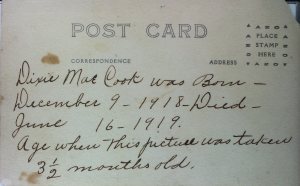 POST CARD
PLACE
STAMP
HERE
CORRESPONDENCE
ADDRESS
Dixie Mae Cook was Born –
December 9 – 1918 – Died –
June 16 – 1919.
Age when This picture was taken
3 1/2 months old.